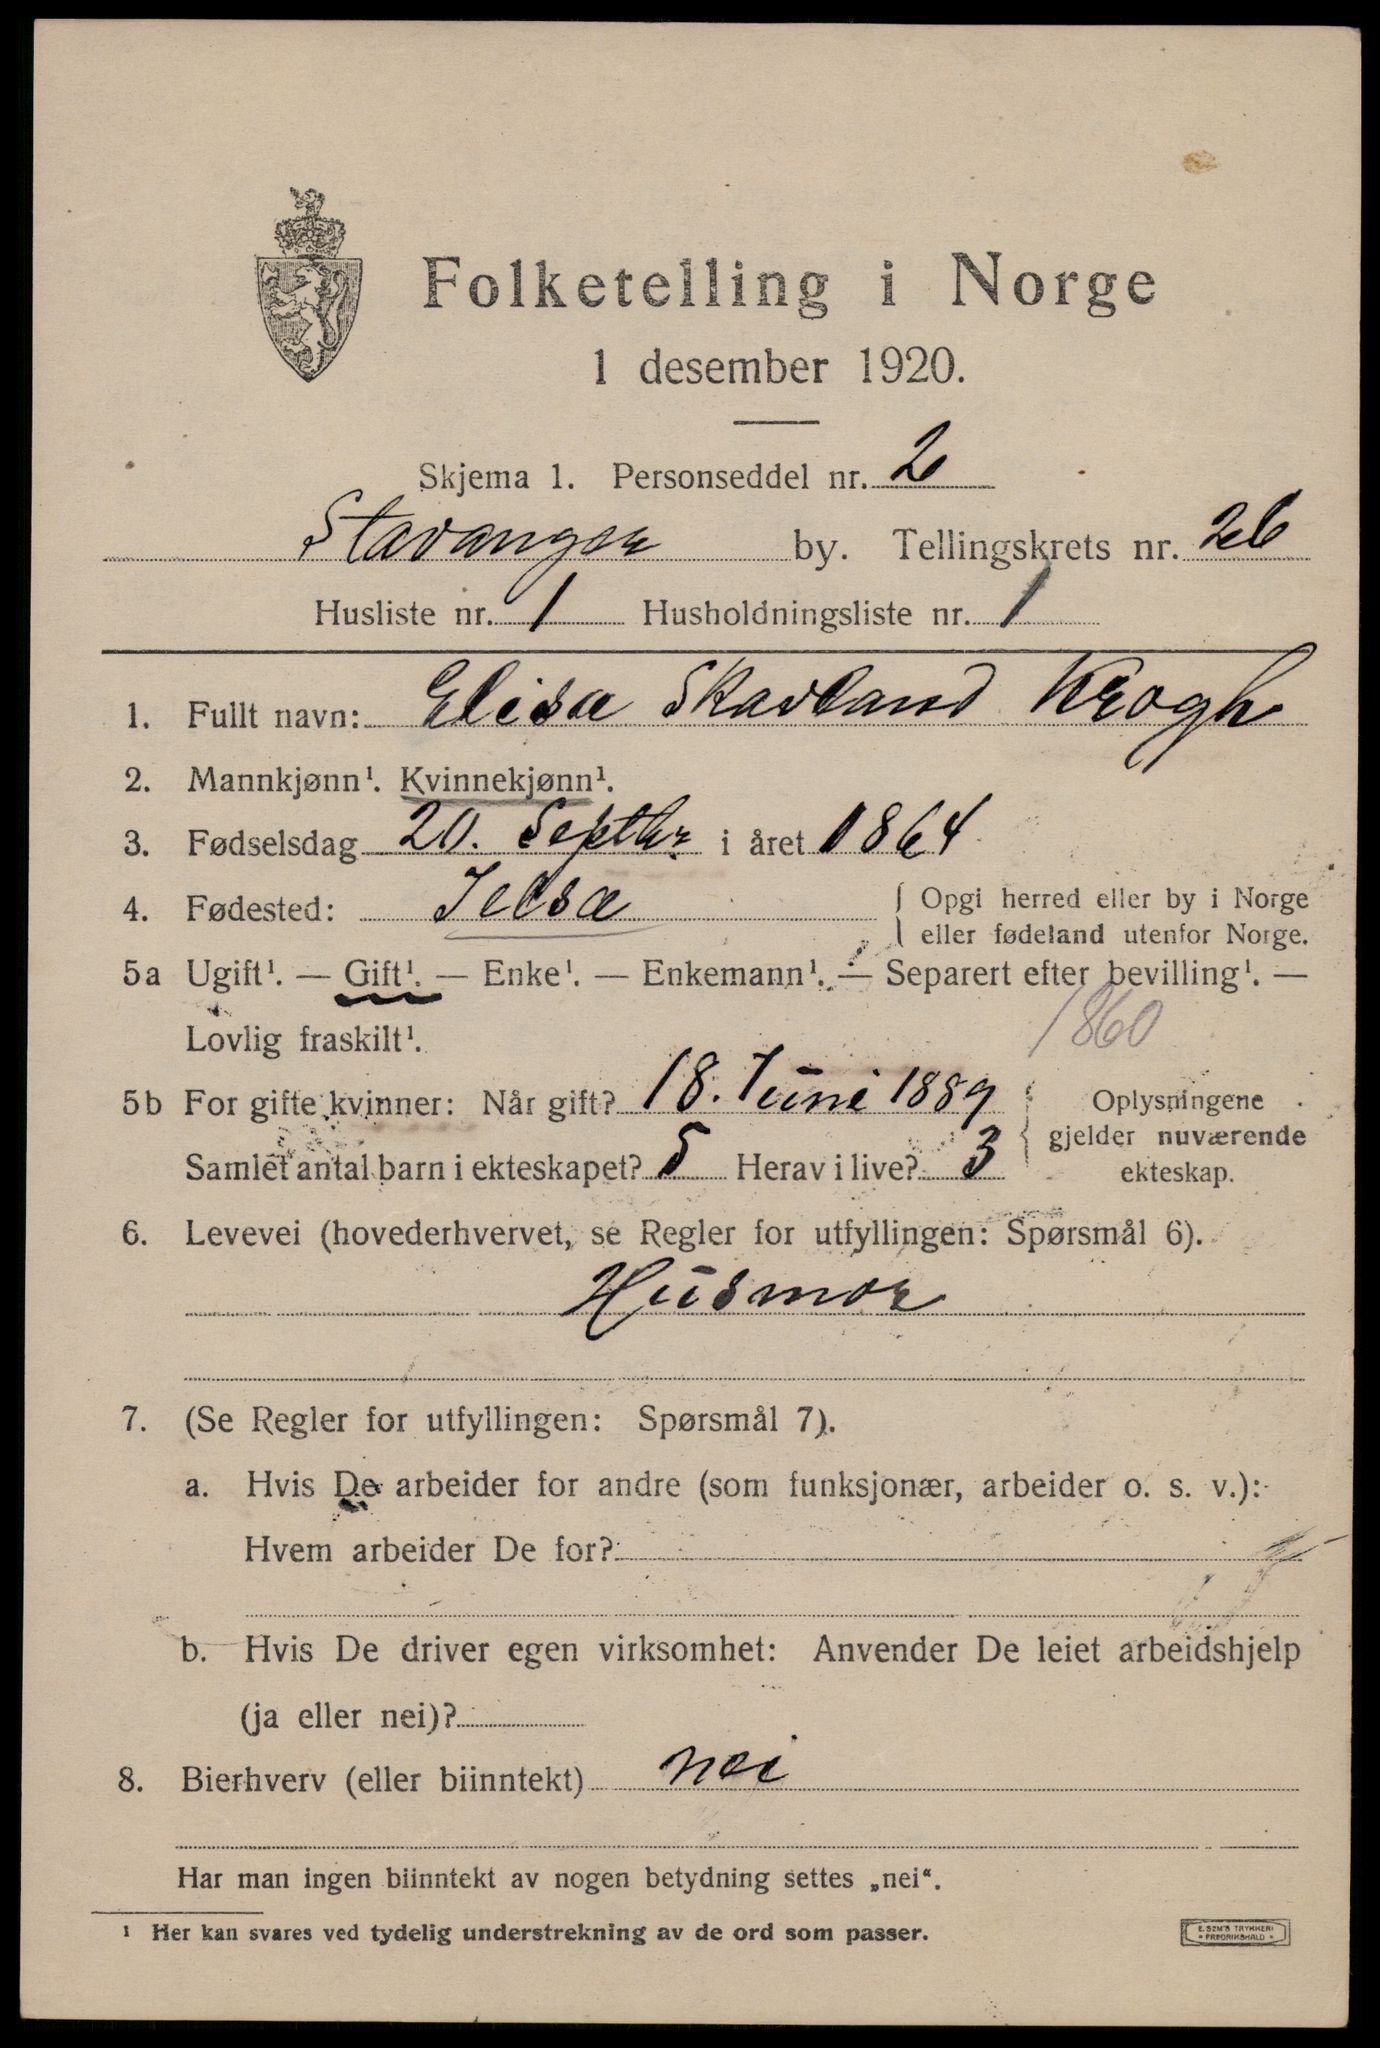 Folketelling i Norge
1 desember 1920.
Skjema 1. Personseddel nr. 2
Stavanger by. Tellingskrets nr. 26
Husliste nr. 1 Husholdningsliste nr. 1
1. Fullt navn: Elisa Skavland Krogh
2. Mannkjønn¹. Kvinnekjønn¹.
3. Fødselsdag 20. Septbr. i året 1864
4. Fødested: Jelsa { Opgi herred eller by i Norge
eller fødeland utenfor Norge.
5a Ugift¹. — Gift¹. — Enke¹. — Enkemann¹. — Separert efter bevilling¹. —
Lovlig fraskilt¹.
1860
5b For gifte kvinner: Når gift? 18. Juni 1889 { Oplysningene
gjelder nuværende
Samlet antal barn i ekteskapet? 5 Herav i live? 3
ekteskap.
6. Levevei (hovederhvervet, se Regler for utfyllingen: Spørsmål 6).
Husmor
7. (Se Regler for utfyllingen: Spørsmål 7).
a. Hvis De arbeider for andre (som funksjonær, arbeider o. s. v.):
Hvem arbeider De for?
b. Hvis De driver egen virksomhet: Anvender De leiet arbeidshjelp
(ja eller nei)?
8. Bierhverv (eller biinntekt) nei
Har man ingen biinntekt av nogen betydning settes „nei“.
¹ Her kan svares ved tydelig understrekning av de ord som passer.
E. SEM'S TRYKKERI
FREDRIKSHALD